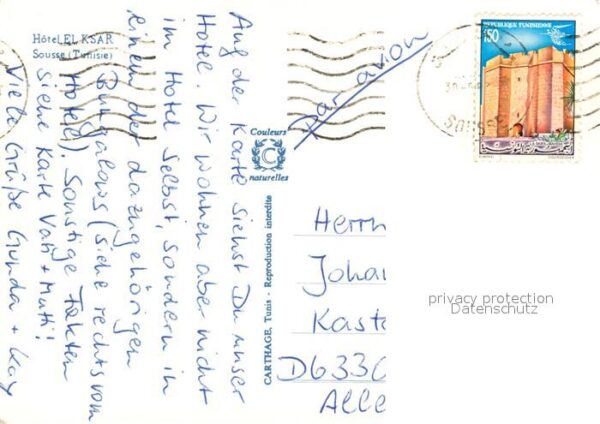 Hôtel EL KSAR
Sousse (Tunisie)
Auf der Karte siehst Du unser
Hotel. Wir wohnen aber nicht
im Hotel selbst, sondern in
einem der dazugehörigen
Bungalows (siehe rechts vom
Hotel). Sonstige Fakten
siehe Karte Vati + Mutti!
Viele Grüße Gunda + Kay
Couleurs
C
naturelles
CARTHAGE, Tunis - Reproduction interdite
Par avion
SOUSSE
REPUBLIQUE TUNISIENNE
150
Herrn
Johan
Kasta
D6330
Alle
privacy protection
Datenschutz